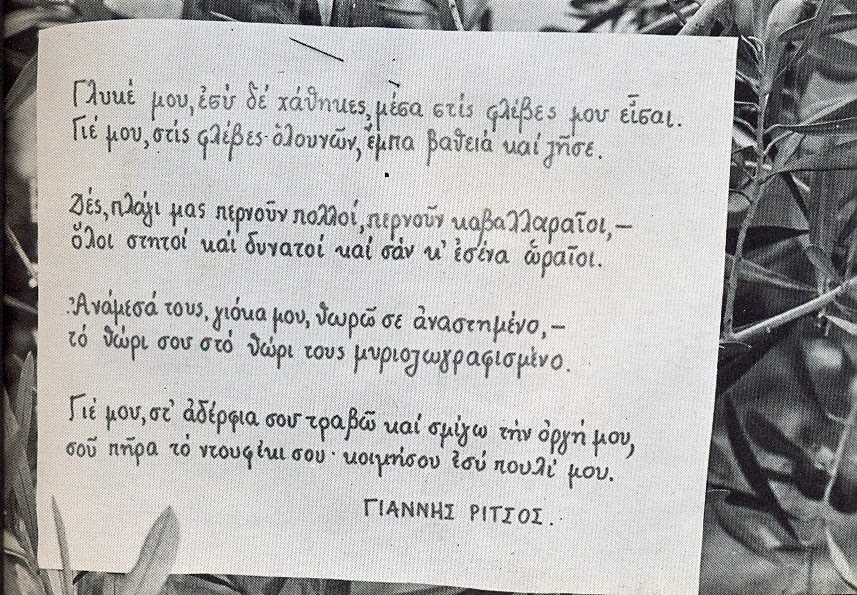 Γλυκέ μου, ἐσύ δέ χάθηκες, μέσα στίς φλέβες μου εἶσαι.
Γιέ μου, στίς φλέβες ὁλουνῶν, ἔμπα βαθειά καί ζῆσε.
Δές, πλάγι μας περνοῦν πολλοί, περνοῦν καβαλλαραῖοι,—
ὅλοι στητοί καί δυνατοί καί σάν κ' ἐσένα ὡραῖοι.
Ἀνάμεσά τους, γιόκα μου, θωρῶ σε ἀναστημένο,—
τό θώρι σου στό θώρι τους μυριοζωγραφισμένο.
Γιέ μου, στ' ἀδέρφια σου τραβῶ καί σμίγω τήν ὀργή μου,
σοῦ πῆρα τό ντουφέκι σου· κοιμήσου ἐσύ πουλί μου.
ΓΙΑΝΝΗΣ ΡΙΤΣΟΣ.